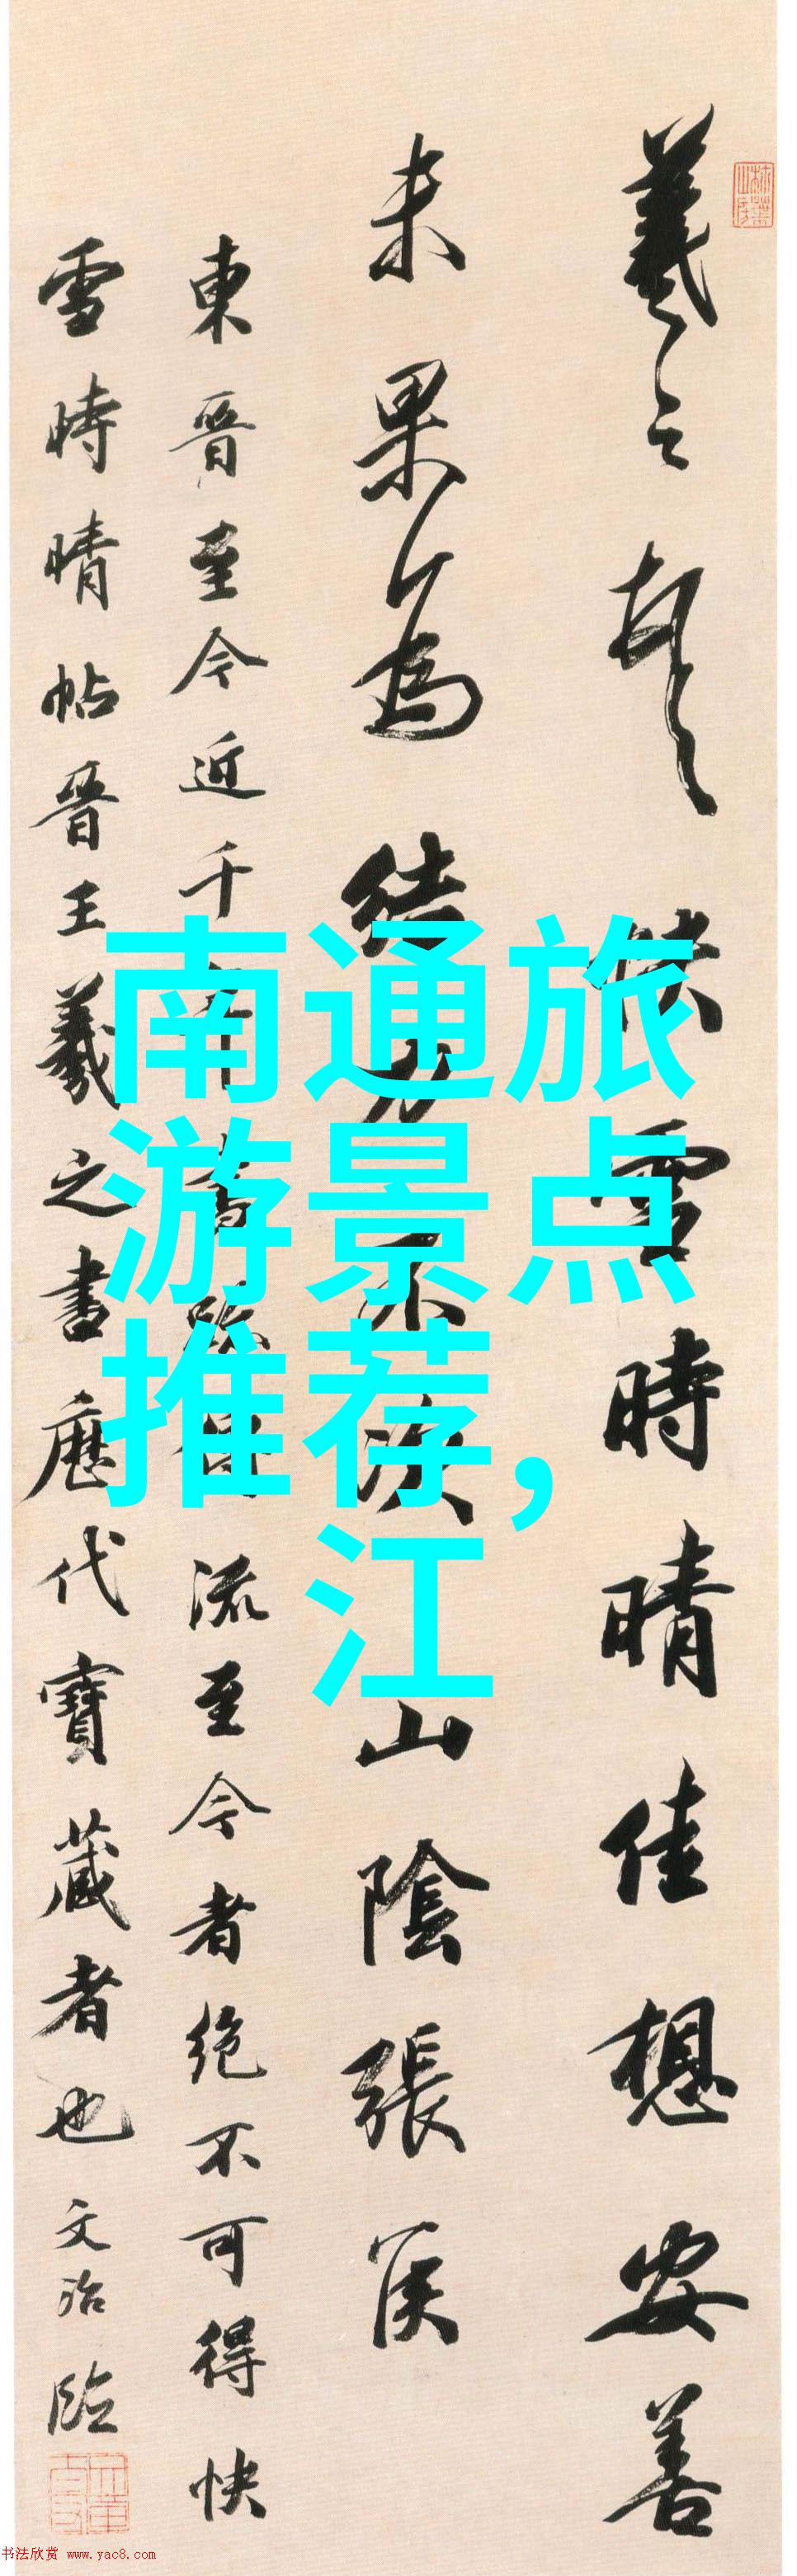 羲之頓首快雪時晴佳想安善
未果為結力不次山陰張侯
東晉至今近千年書跡傳流至今者絕不可得快
雪時晴帖晉王羲之書歷代寶藏者也文治臨
南通旅
游景点
推荐,
江
书法欣赏 www.yac8.com